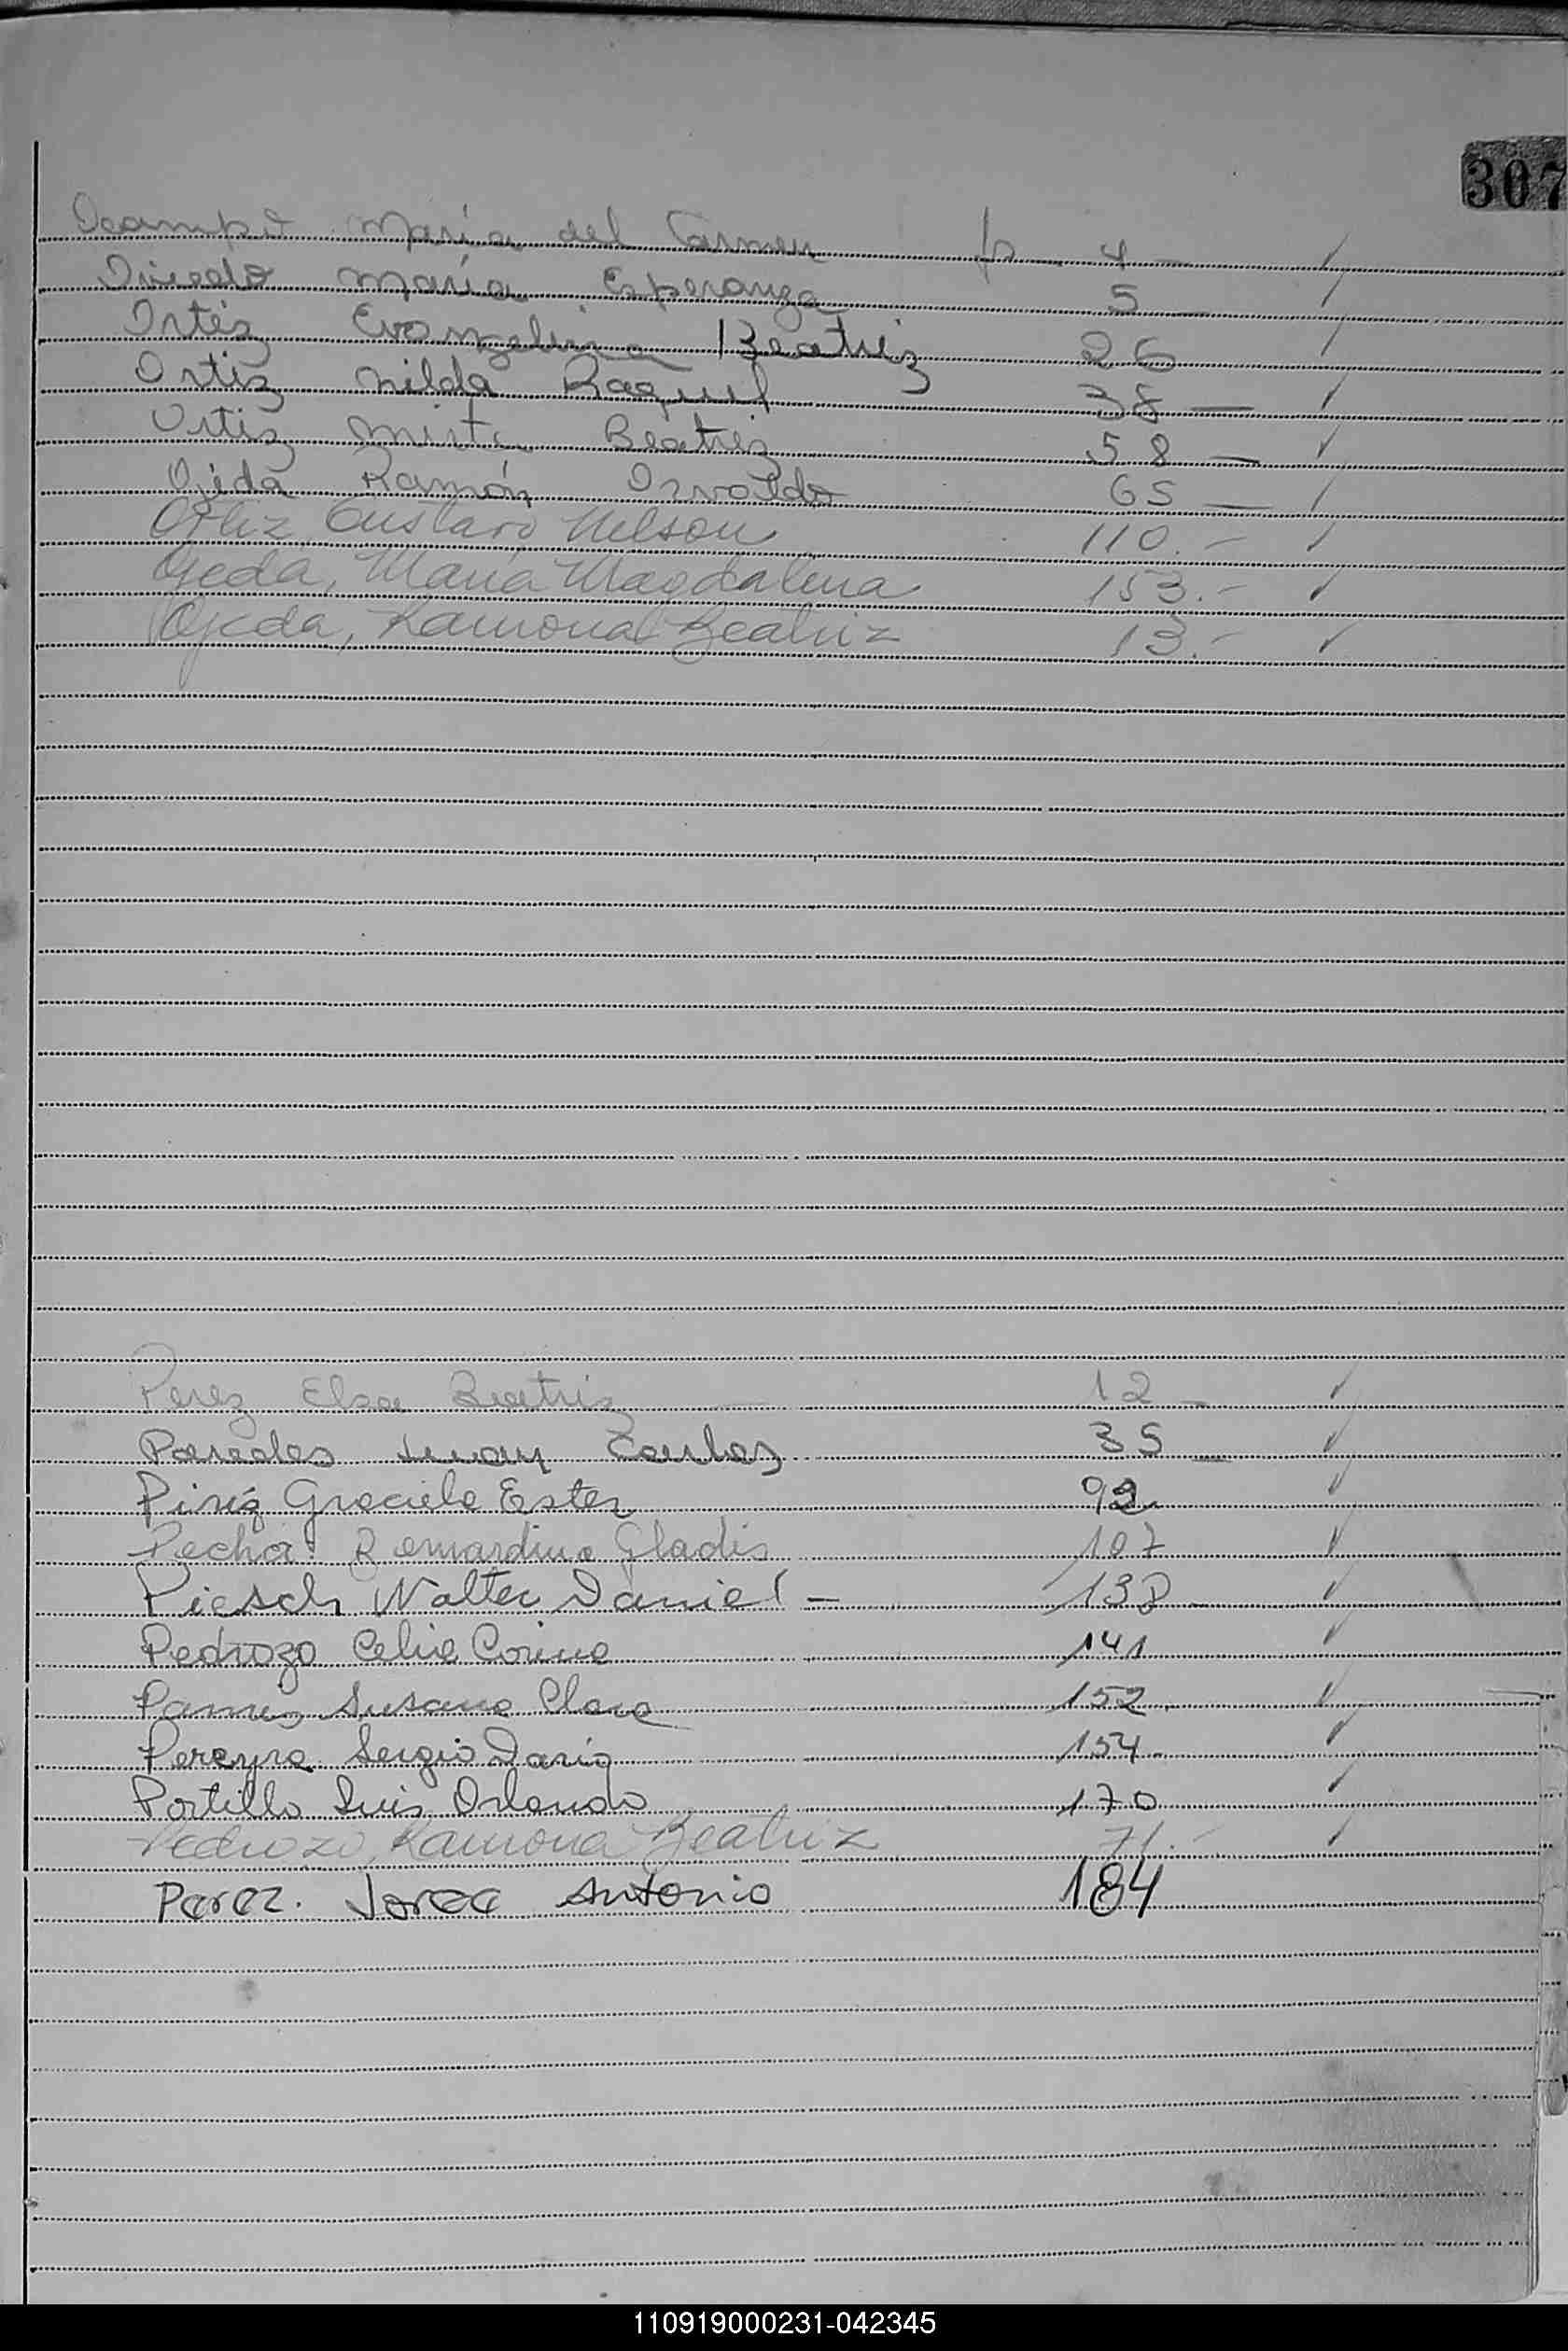 307
Ocampo María del Carmen fs 4 —
Oviedo María Esperanza 5 —
Ortiz Evangelina Beatriz 26
Ortiz Nilda Raquel 38 —
Ortiz Mirta Beatriz 58 —
Ojeda Ramón Osvaldo 65 —
Ortiz, Gustavo Nelson 110.-
Ojeda, María Magdalena 153.-
Ojeda, Ramona Beatriz 13.-
Perez Elsa Beatriz 12 —
Paredes Juan Carlos 35 —
Piriz Graciela Ester 92
Bernardina Gladis 107
Piesch Walter Daniel — 138
Pedrozo Celia Corina 141
Susana Clara 152
Pereyra Sergio Dario 154
Portillo Luis Orlando 170
Pedrozo, Ramona Beatriz 71.-
Perez. Jorge Antonio 184
110919000231-042345